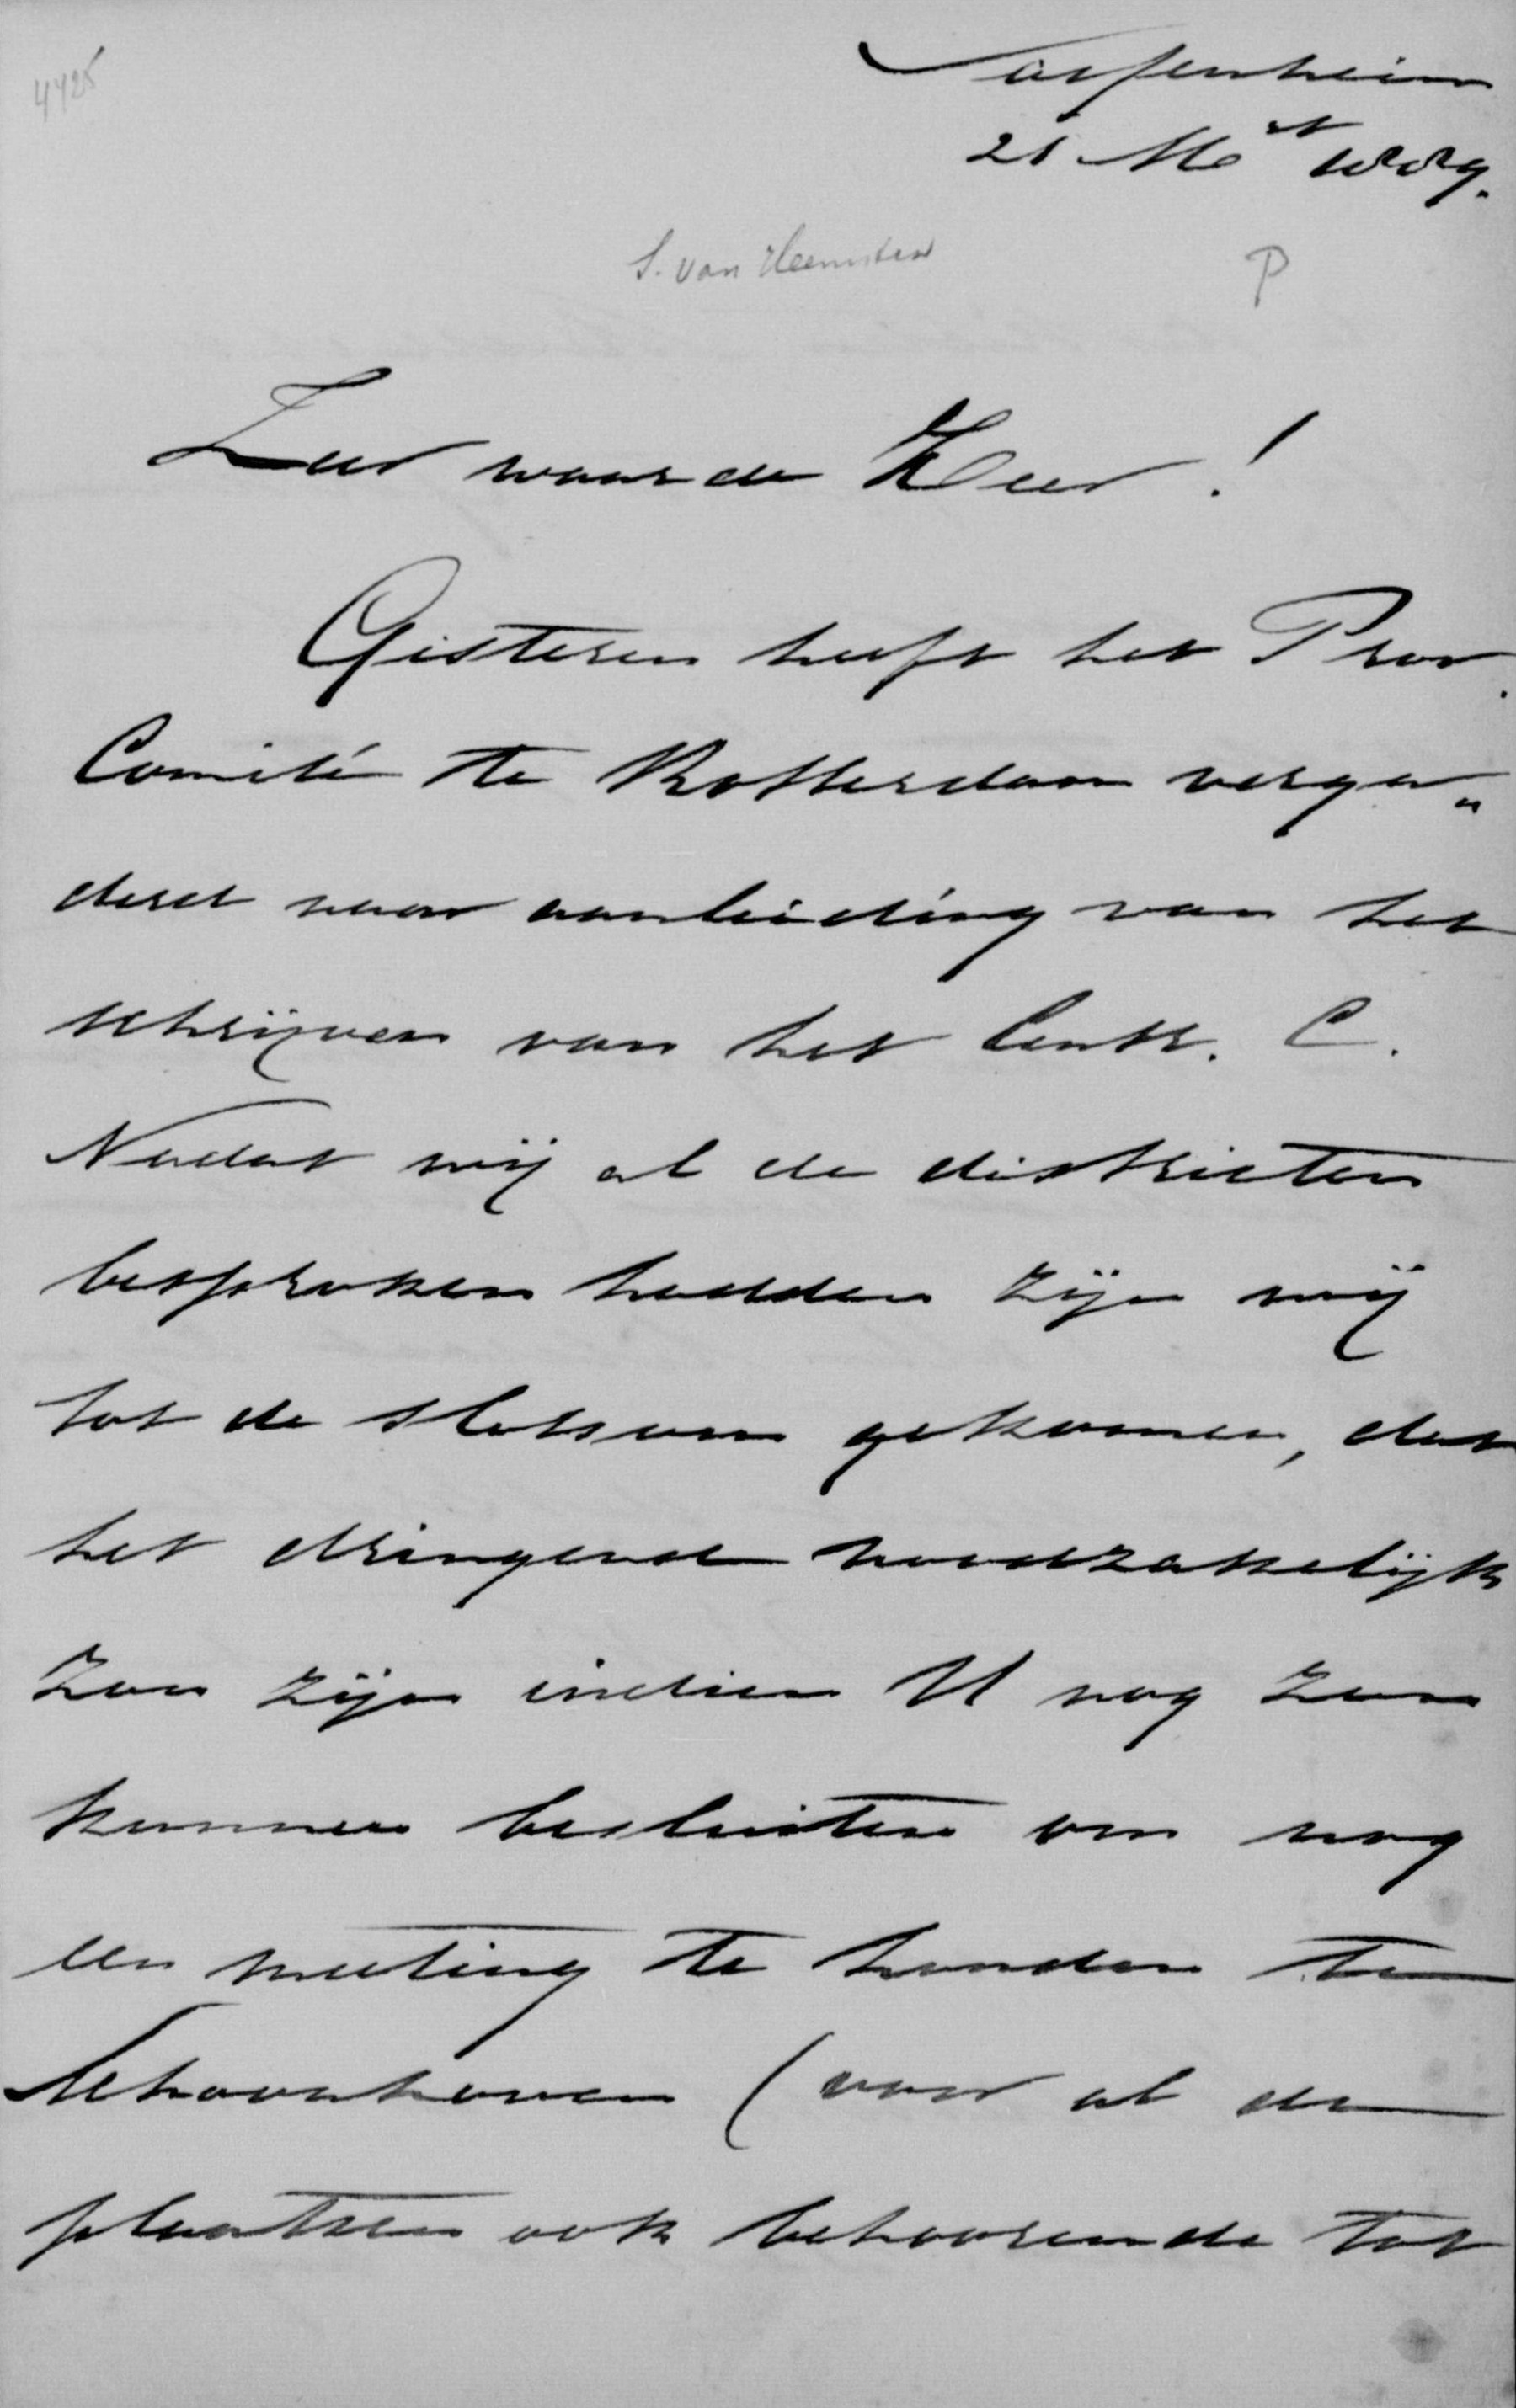 4425
Sassenheim
21 Mrt 1889.
S. van Heemstra
P
Zeer waarde Heer!
Gisteren heeft het Prov.
Comité te Rotterdam verga„
derd naar aanleiding van het
schrijven van het Centr. C.
Nadat wij al de districten
besproken hadden zijn wij
tot de slotsom gekomen, dat
het dringend noodzakelijk
zou zijn indien U nog zou
kunnen besluiten om nog
een meeting te houden te
Schoonhoven (voor al de
plaatsen ook behoorende tot